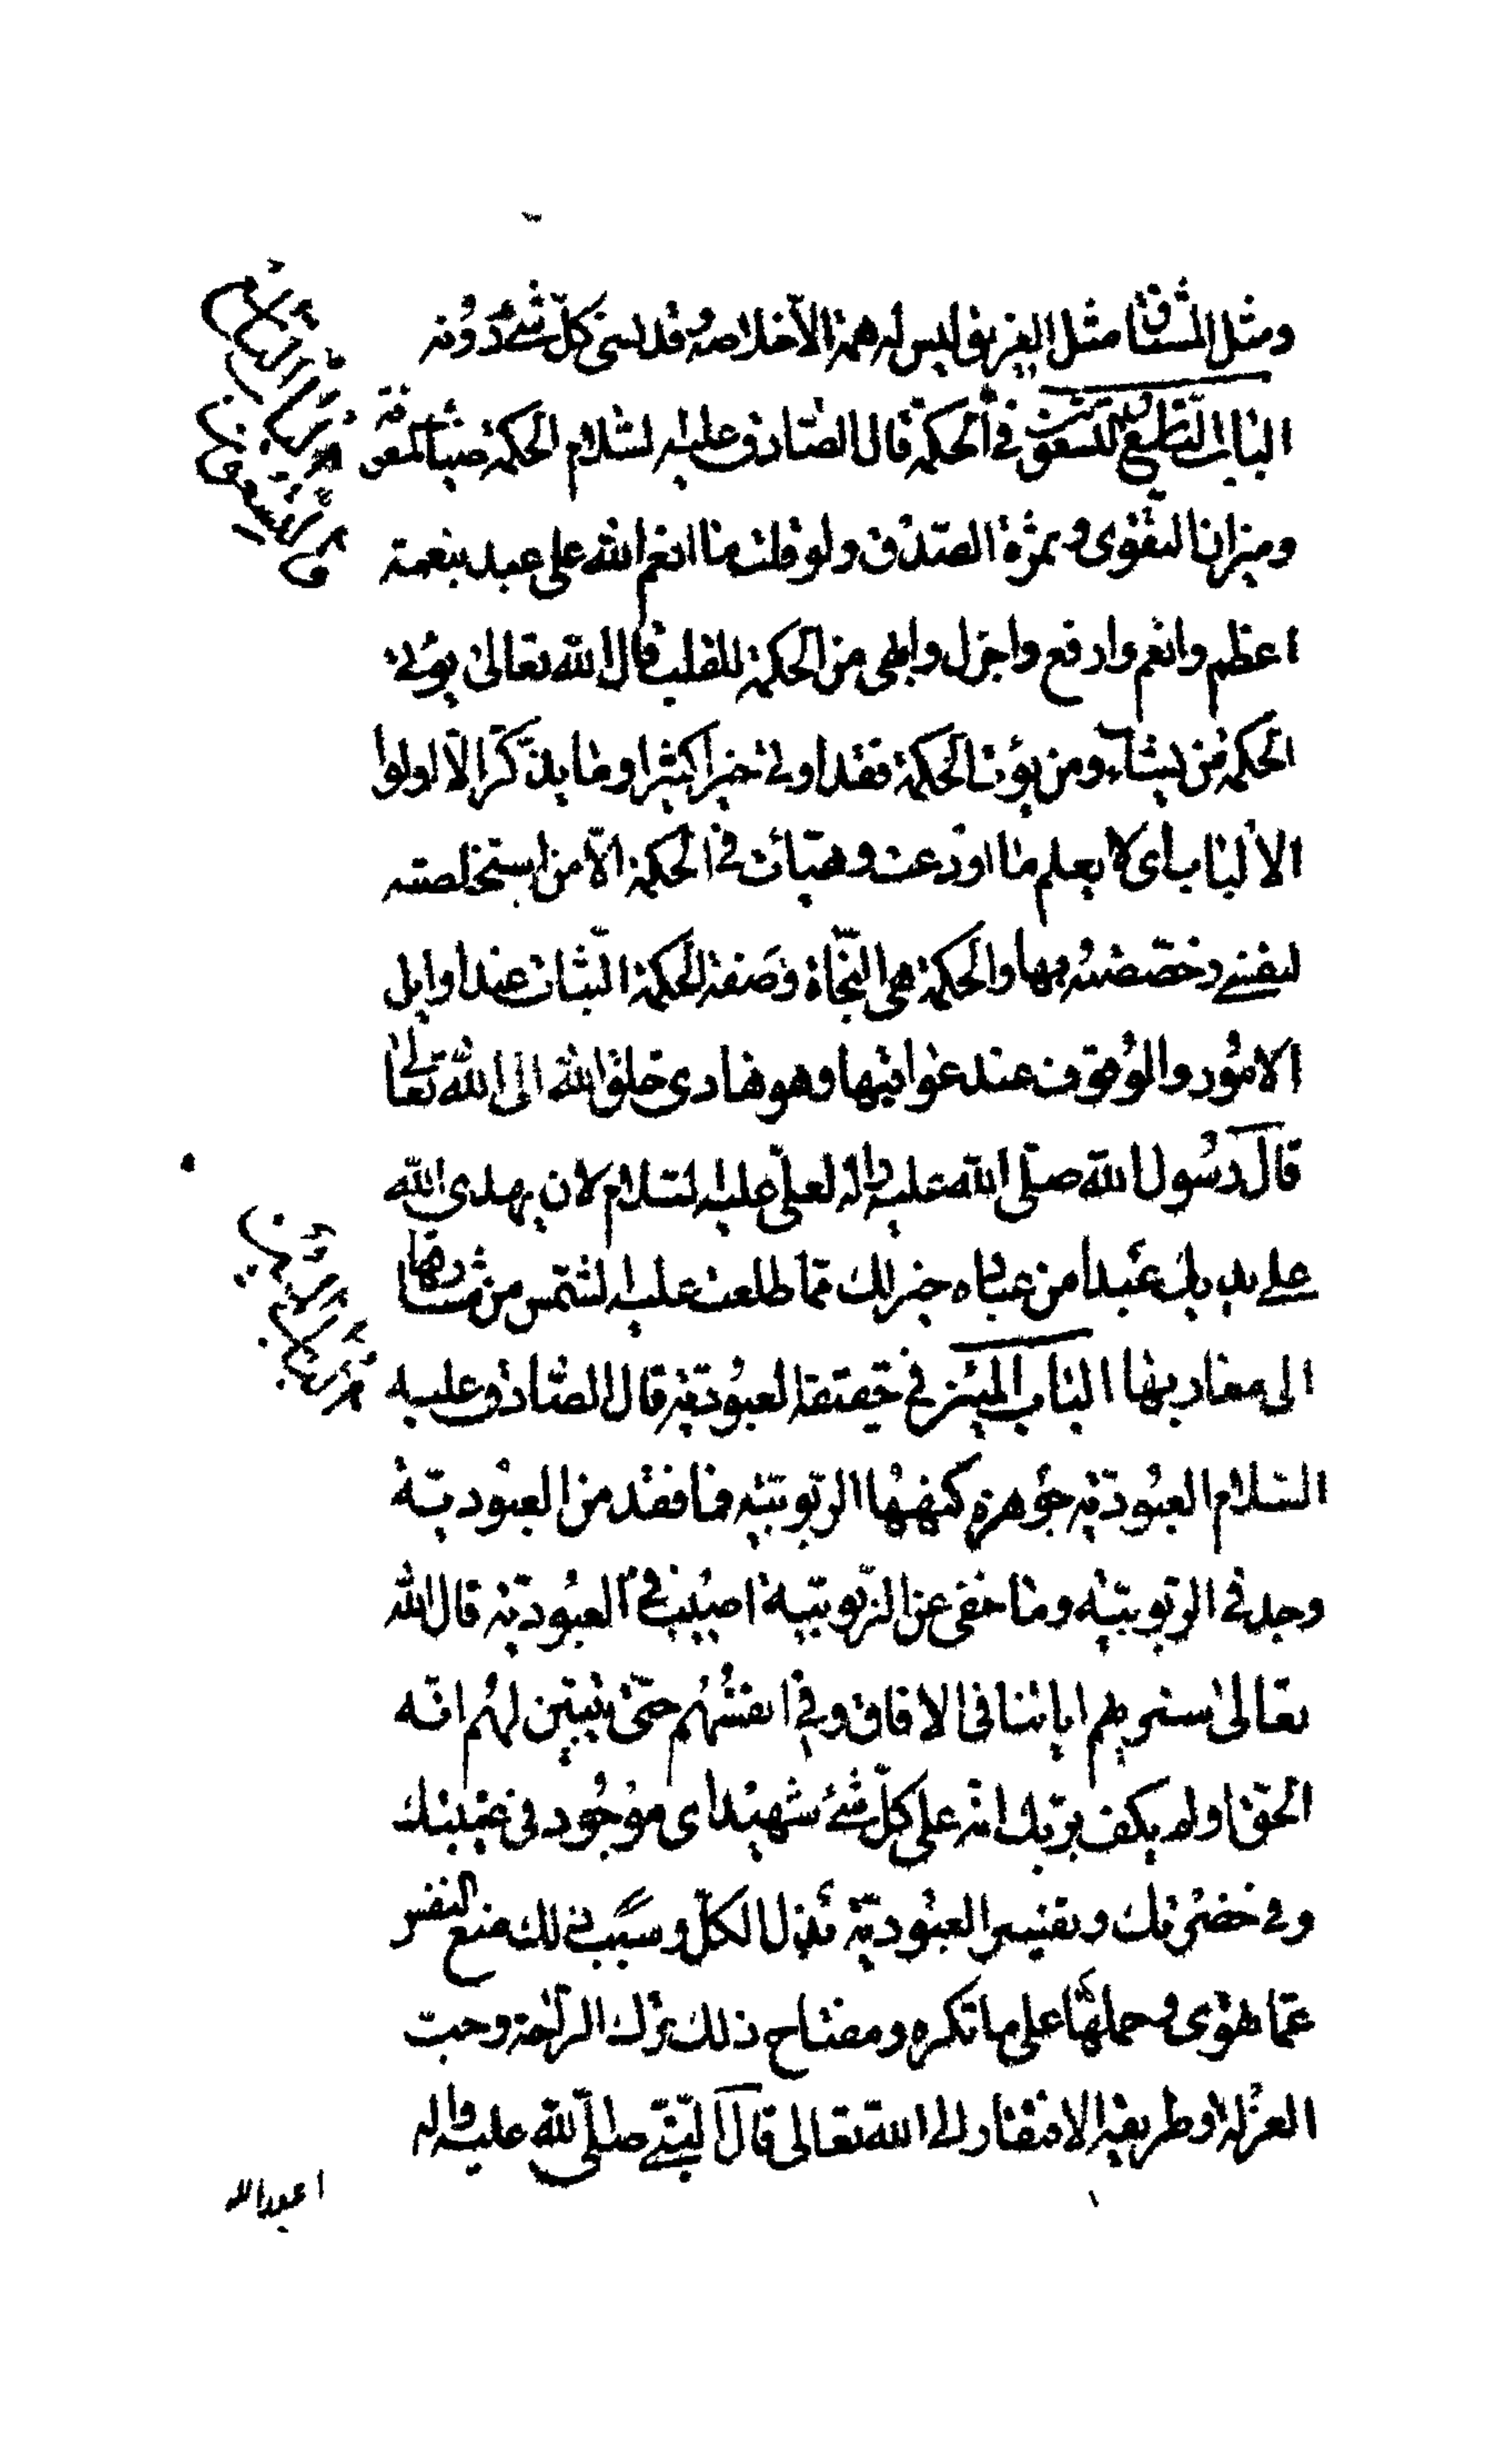 ومثل المشتاق مثل الغريق ليس له همة الا خلاصه وقد نسى كل شئ دونه
الباب التاسع والتسعون فى الحكمة قال الصادق عليه السلام الحكمة ضياء المعرفة
وميزان التقوى وثمرة الصدق ولو قلت ما انعم الله على عبد بنعمة
اعظم وانعم وارفع واجزل وابهى من الحكمة للقلب قال الله تعالى يؤتى
الحكمة من يشاء ومن يؤت الحكمة فقد اوتى خيرا كثيرا وما يذكر الا اولوا
الالباب اى لا يعلم ما اودعت وهيات فى الحكمة الا من استخلصته
لنفسى وخصصته بها والحكمة هى النجاة وصفة الحكمة الثبات عند اوايل
الامور والوقوف عند عواقبها وهو هادى خلق الله الى الله تعالى
قال رسول الله صلى الله عليه واله لعلى عليه السلام لان يهدى الله
على يديك عبدا من عباده خير لك مما طلعت عليه الشمس من مشارقها
الى مغاربها الباب المائة فى حقيقة العبودية قال الصادق عليه
السلام العبودية جوهرة كنهها الربوبية فما فقد من العبودية
وجد فى الربوبية وما خفى عن الربوبية اصيب فى العبودية قال الله
تعالى سنريهم اياتنا فى الافاق وفى انفسهم حتى يتبين لهم انه
الحق اولم يكف بربك انه على كل شئ شهيد اى موجود فى غيبتك
وفى حضرتك وتفسير العبودية بذل الكل وسبب ذلك منع النفس
عما تهوى وحملها على ما تكره ومفتاح ذلك ترك الراحة وحب
العزلة وطريقه الافتقار الى الله تعالى قال النبى صلى الله عليه واله
اعبد الله